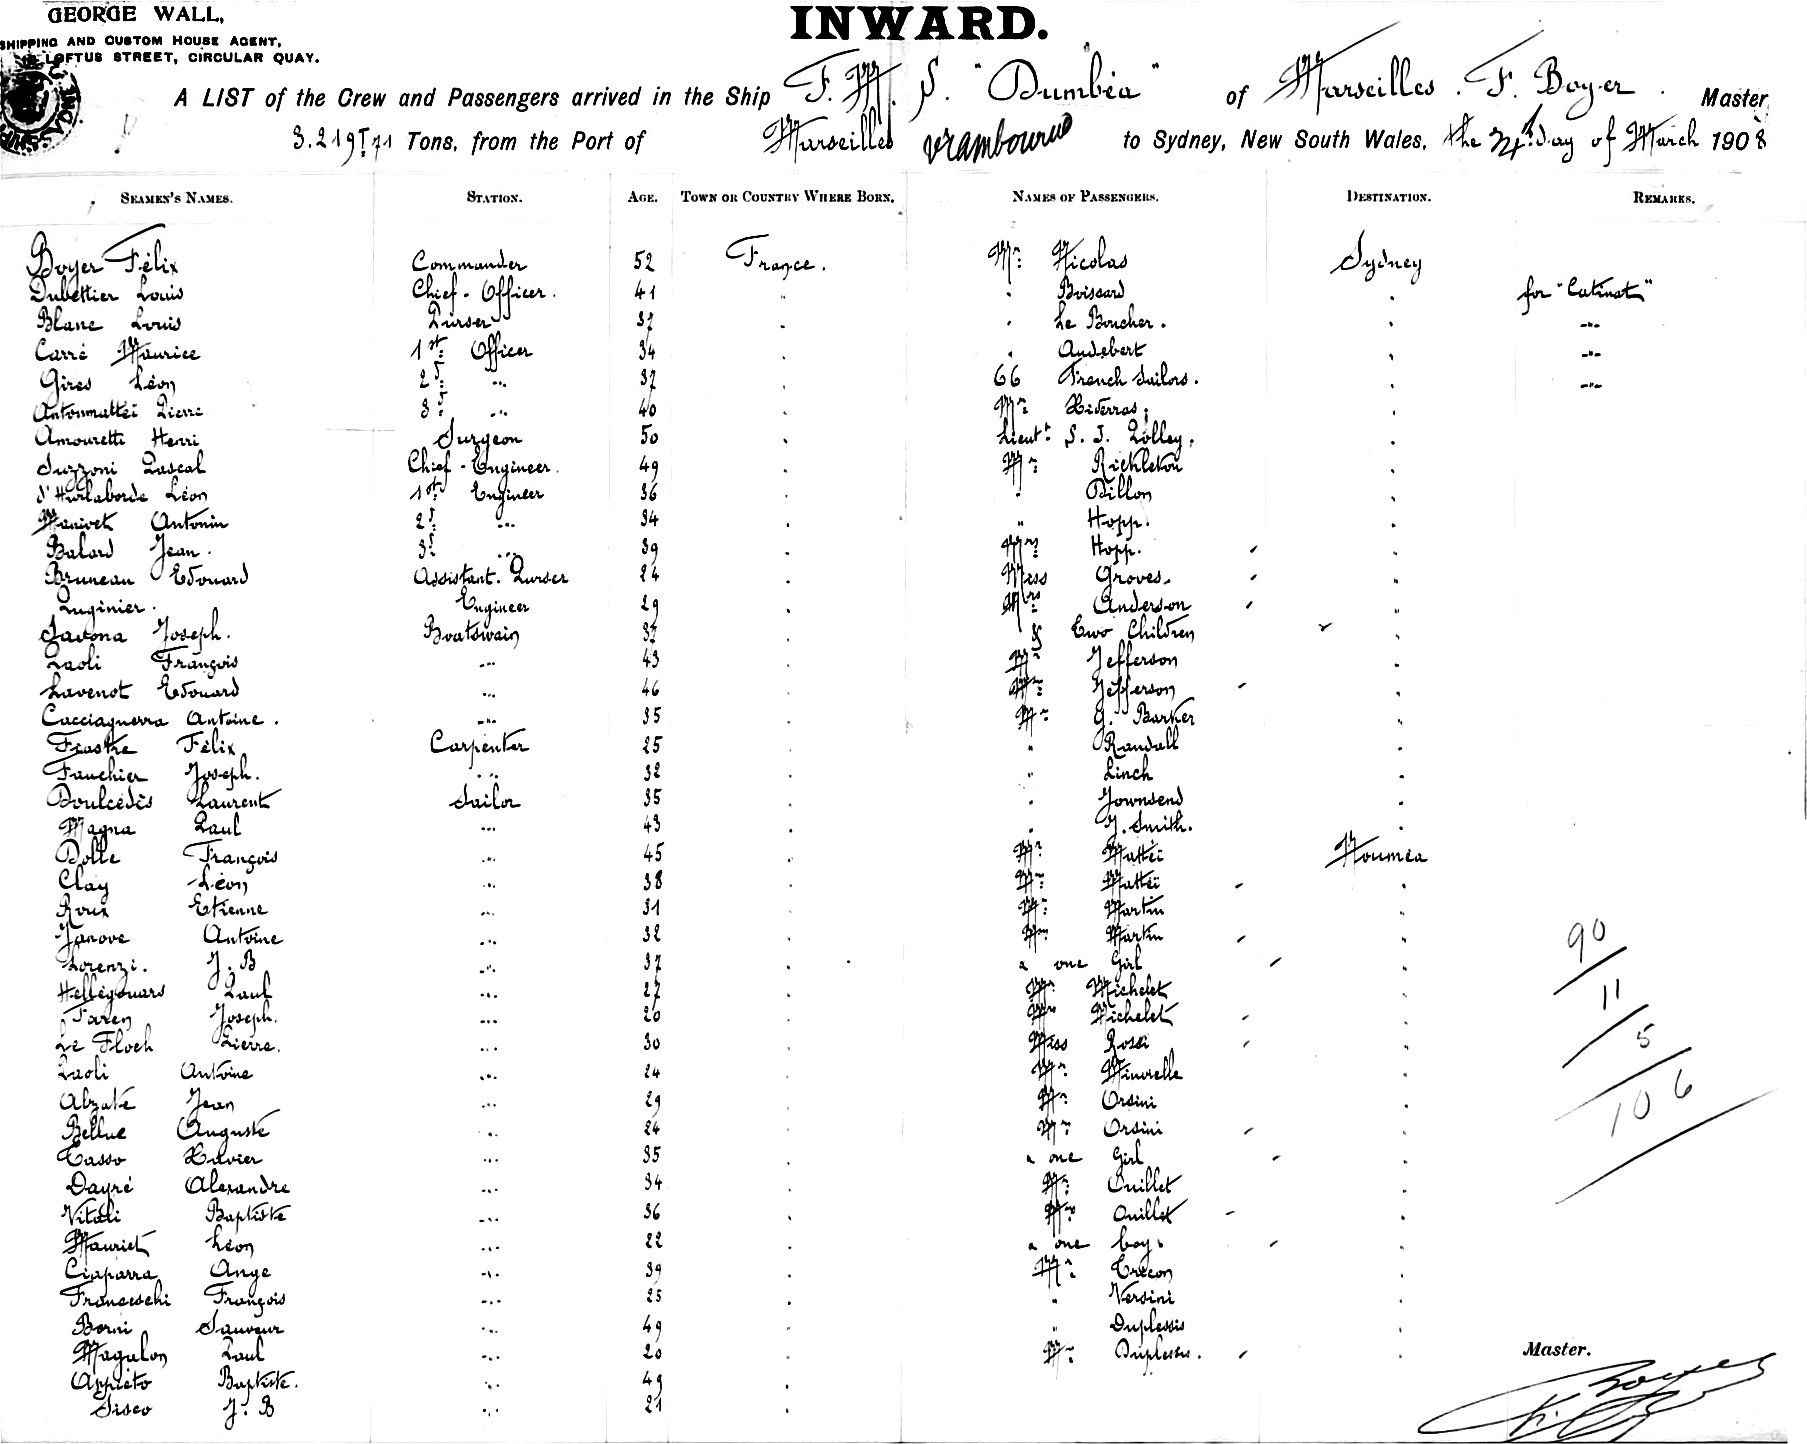 GEORGE WALL,
SHIPPING AND CUSTOM HOUSE AGENT,
LOFTUS STREET, CIRCULAR QUAY.
INWARD.
A LIST of the Crew and Passengers arrived in the Ship F. M. S. "Dumbéa" of Marseilles. F. Boyer. Master,
3.219 T 71 Tons, from the Port of Marseilles to Sydney, New South Wales, the day of March 1908
SEAMEN'S NAMES. STATION. AGE. TOWN OR COUNTRY WHERE BORN. NAMES OF PASSENGERS. DESTINATION. REMARKS.
Boyer Félix Commander 52 France. Mr. Nicolas Sydney
Dubettier Louis Chief-Officer. 41 " " Boissard " for "Catinat"
Blanc Louis Purser 37 " " Le Boucher. " -"-
Carré Maurice 1st Officer 34 " " Audebert " -"-
Gires Léon 2d -"- 37 " 66 French Sailors. " -"-
Antonmattei Pierre 3d -"- 40 " Mr. "
Amouretti Henri Surgeon 50 " Lieut. S. J. Polley. "
Suzzoni Pascal Chief-Engineer. 49 " Mr. Rickleton "
d'Hurlaborde Léon 1st Engineer 36 " " Dillon "
Manivet Antonin 2d -"- 34 " " Hopp. "
Balard Jean. 3d -"- 39 " Mrs. Hopp. "
Bruneau Edouard Assistant. Purser 24 " Miss Groves. "
Puginier. Engineer 29 " Mrs. Anderson "
Savona Joseph. Boatswain 37 " & Two Children "
Paoli François -"- 43 " Mr. Jefferson "
Lavenot Edouard -"- 46 " Mrs. Jefferson "
Cacciaguerra Antoine. -"- 35 " Mr. G. Barker "
Félix Carpenter 25 " " Randall "
Fauchier Joseph. -"- 32 " " Linch "
Doulcedès Laurent Sailor 35 " " Townsend "
Magna Paul -"- 43 " " J. Smith. "
Dolle François -"- 45 " Mr. Mattei Nouméa
Clay Léon -"- 38 " Mme. Mattei "
Roux Etienne -"- 31 " Mr. Martin "
Janove Antoine -"- 32 " Mme. Martin "
Lorenzi. J. B -"- 37 " & one Girl "
Hellégouars Paul -"- 27 " Mr. Michelet "
Faren Joseph. -"- 20 " Mme. Michelet "
Le Floch Pierre. -"- 30 " Miss Rossi "
Paoli Antoine -"- 24 " Mr. Minvielle "
Alzate Jean -"- 29 " Mr. Orsini "
Bellue Auguste -"- 24 " Mme. Orsini "
Tasso Xavier -"- 35 " & one Girl "
Dayré Alexandre -"- 34 " Mr. Ouillet "
Vitali Baptiste -"- 36 " Mme. Ouillet "
Mauriet Léon -"- 22 " & one boy. "
Ciaparra Ange -"- 39 " Mr. Trecon "
Franceschi François -"- 25 " " Versini "
Borni Sauveur -"- 49 " " Duplessis "
Magalon Paul -"- 20 " Mme. Duplessis. "
Appieto Baptiste. -"- 49 "
Sisco J. B -"- 21 "
90
11
5
106
Master.